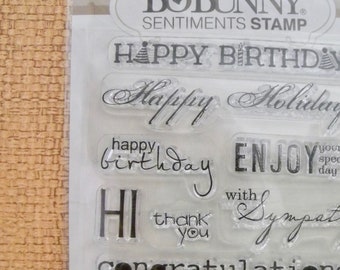 BOBUNNY®
SENTIMENTS STAMP
HAPPY BIRTHDAY
Happy Holiday
happy
birthday
ENJOY your
spec
day
HI
thank
you
with
Sympat
congratulations